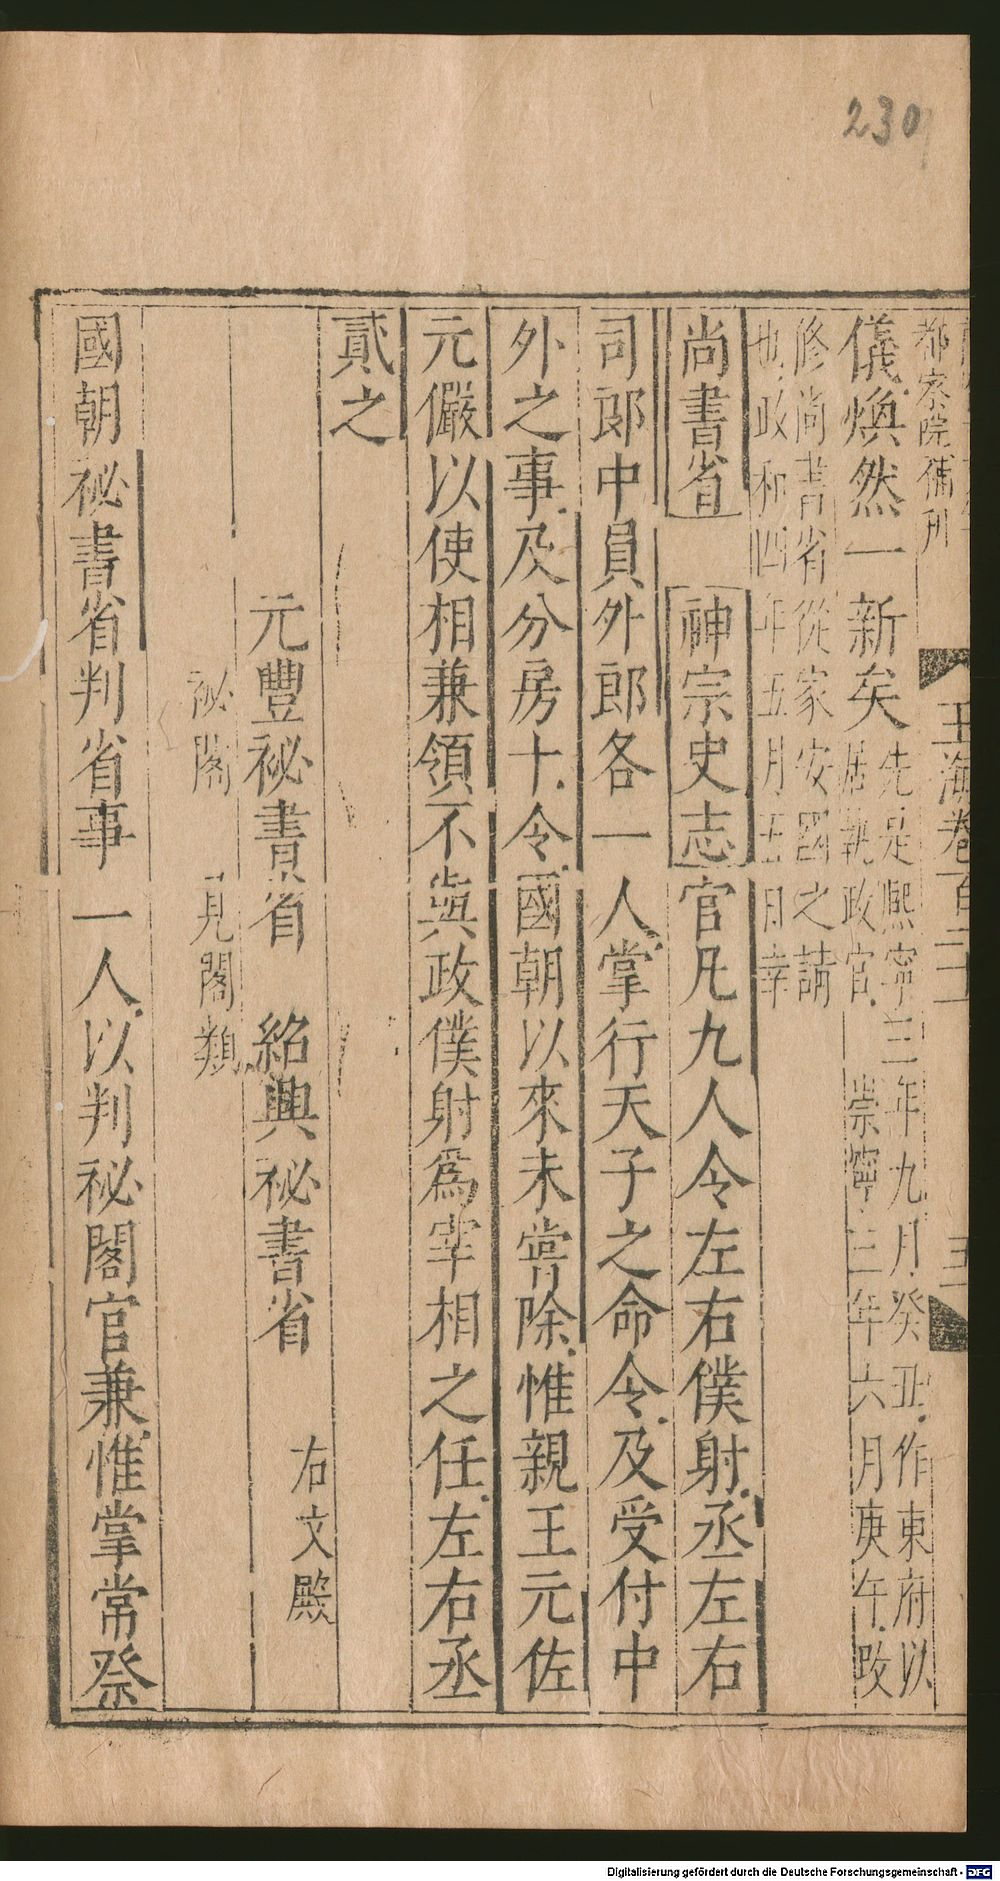 230
都察院補刊
玉海卷百二十
五
儀煥然一新矣先是熙寧三年九月癸丑作東府以
居執政官崇寧三年六月庚午改
修尚書省從家安國之請
也政和四年五月五日幸
尚書省 神宗史志官凡九人令左右僕射丞左右
司郎中員外郎各一人掌行天子之命令及受付中
外之事及分房十令國朝以來未嘗除惟親王元佐
元儼以使相兼領不與政僕射爲宰相之任左右丞
貳之
元豐祕書省 紹興祕書省 右文殿
祕閣 見閣類
國朝祕書省判省事一人以判祕閣官兼惟掌常祭
Digitalisierung gefördert durch die Deutsche Forschungsgemeinschaft - DFG